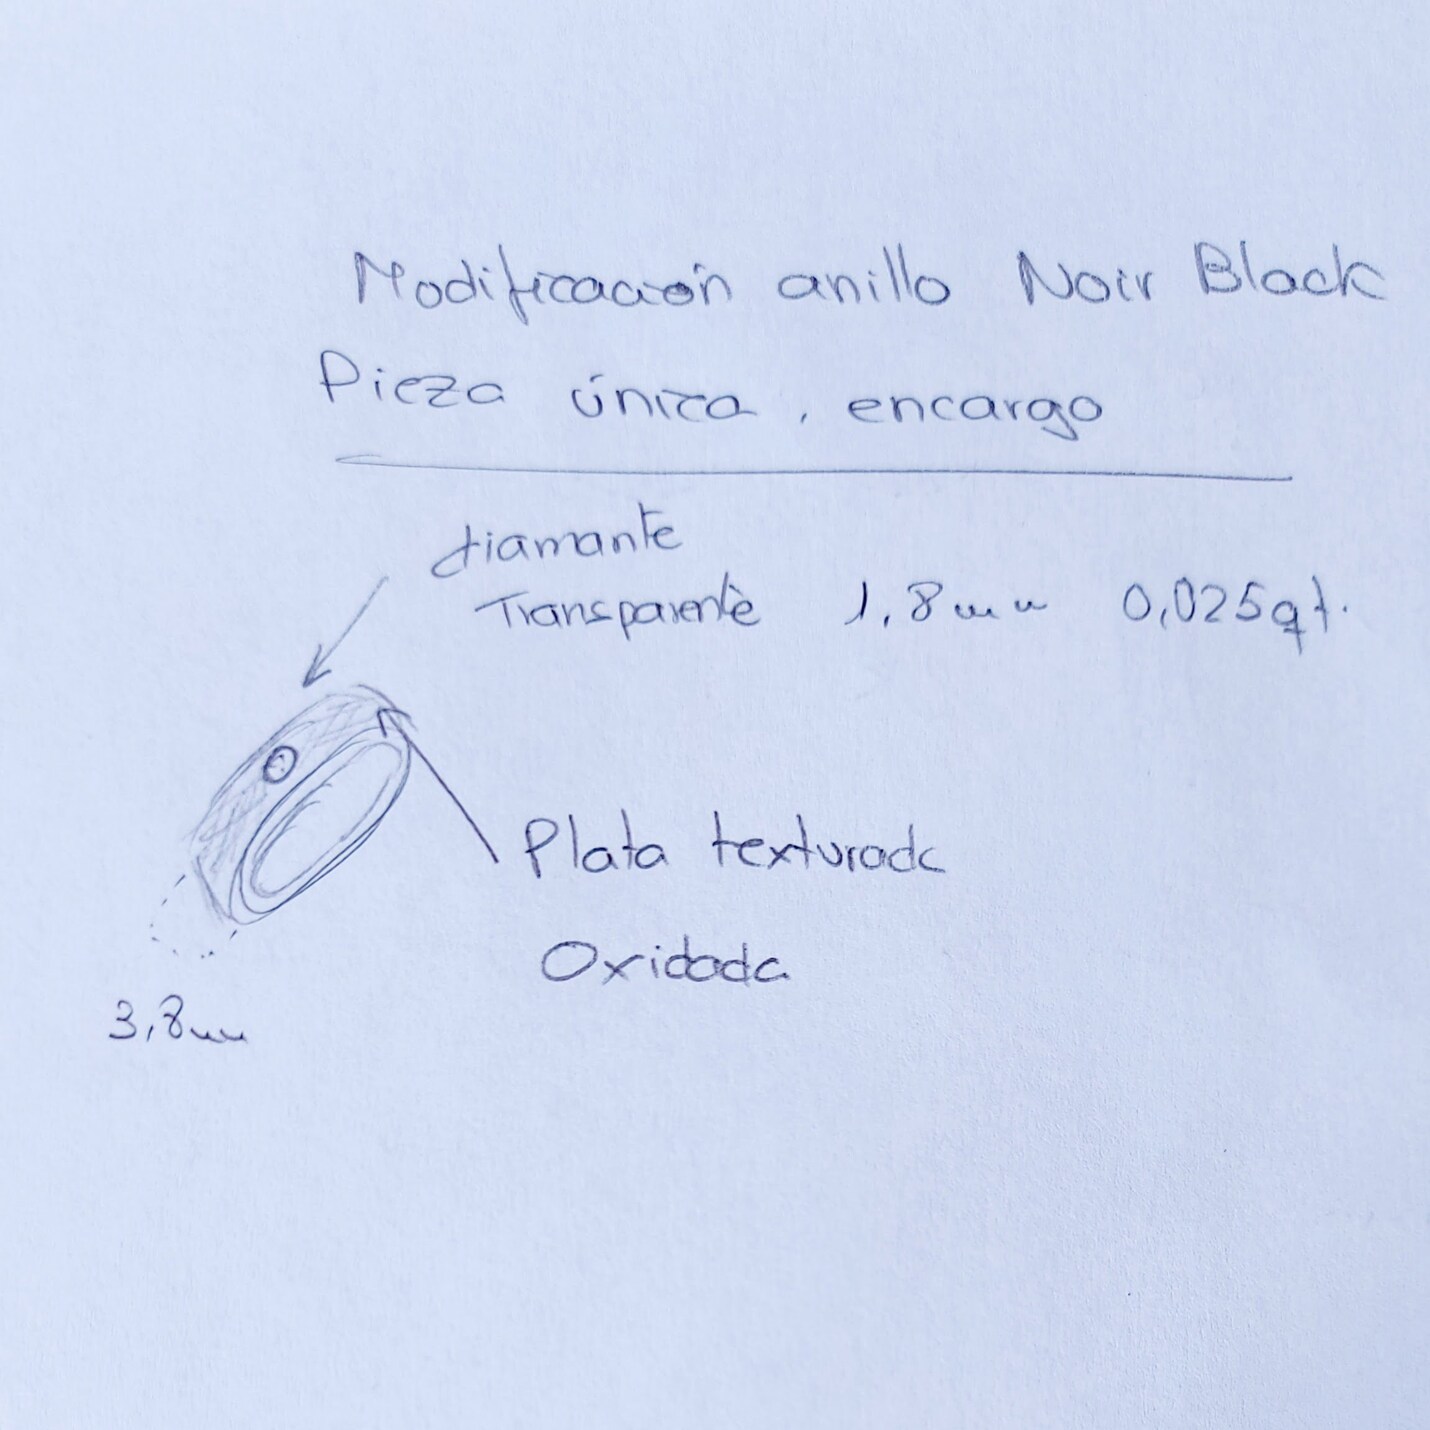 Modificación anillo Noir Black
Pieza única, encargo
diamante
Transparente 1,8mm 0,025qt.
Plata texturada
Oxidada
3,8mm